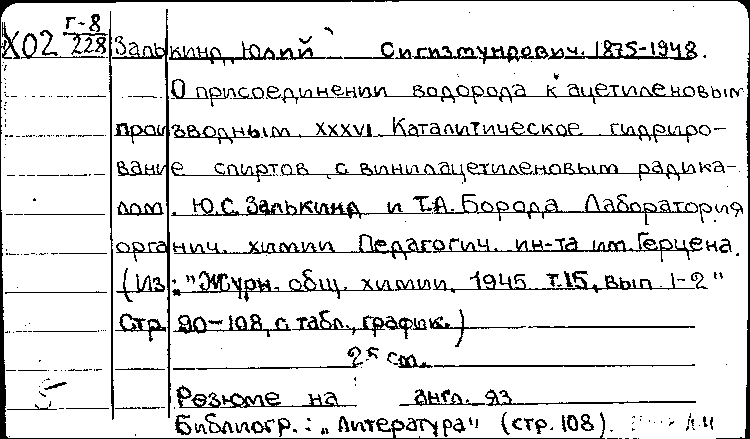 Х02 Г-8/228 Залькинд, Юлий Сигизмундович. 1875-1948.
О присоединении водорода к ацетиленовым
производным. XXXVI. Каталитическое гидриро-
вание спиртов с винилацетиленовым радика-
лом. Ю.С. Залькинд и Т.А. Борода Лаборатория
органич. химии Педагогич. ин-та им. Герцена.
(Из: "Журн. общ. химии. 1945 т.15, вып 1-2"
Стр. 90-108, с табл., график.)
25 см.
Резюме на англ. яз
Библиогр.: "Литература" (стр. 108).